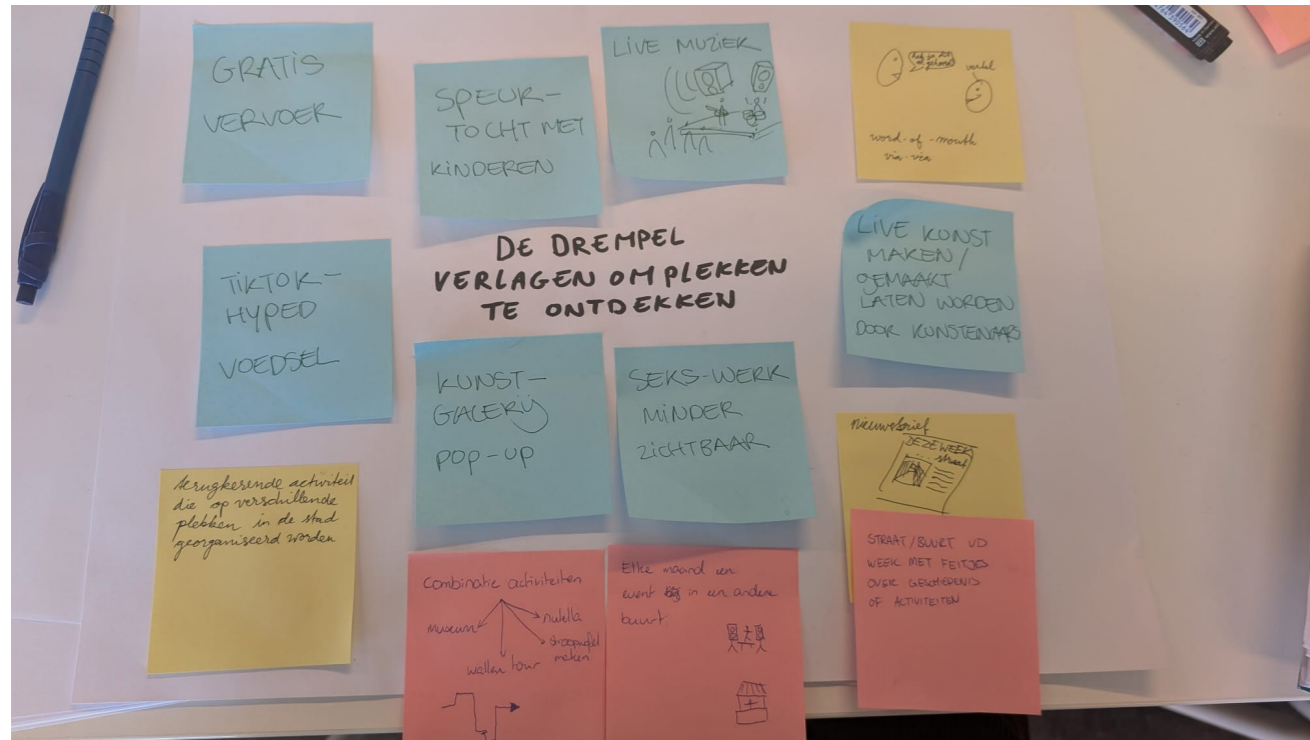 GRATIS
VERVOER
SPEUR-
TOCHT MET
KINDEREN
LIVE MUZIEK
vertel
word-of-mouth
via-via
DE DREMPEL
VERLAGEN OM PLEKKEN
TE ONTDEKKEN
TIKTOK-
HYPED
VOEDSEL
LIVE KUNST
MAKEN/
GEMAAKT
LATEN WORDEN
DOOR KUNSTENAARS
KUNST-
GALERIJ
POP-UP
SEKS-WERK
MINDER
ZICHTBAAR
nieuwsbrief
DEZE WEEK
... straat
terugkerende activiteit
die op verschillende
plekken in de stad
georganiseerd worden
Combinatie activiteiten
museum
nutella
stroopwafel
maken
wallen tour
Elke maand een
event in een andere
buurt
STRAAT/BUURT VD
WEEK MET FEITJES
OVER GESCHIEDENIS
OF ACTIVITEITEN